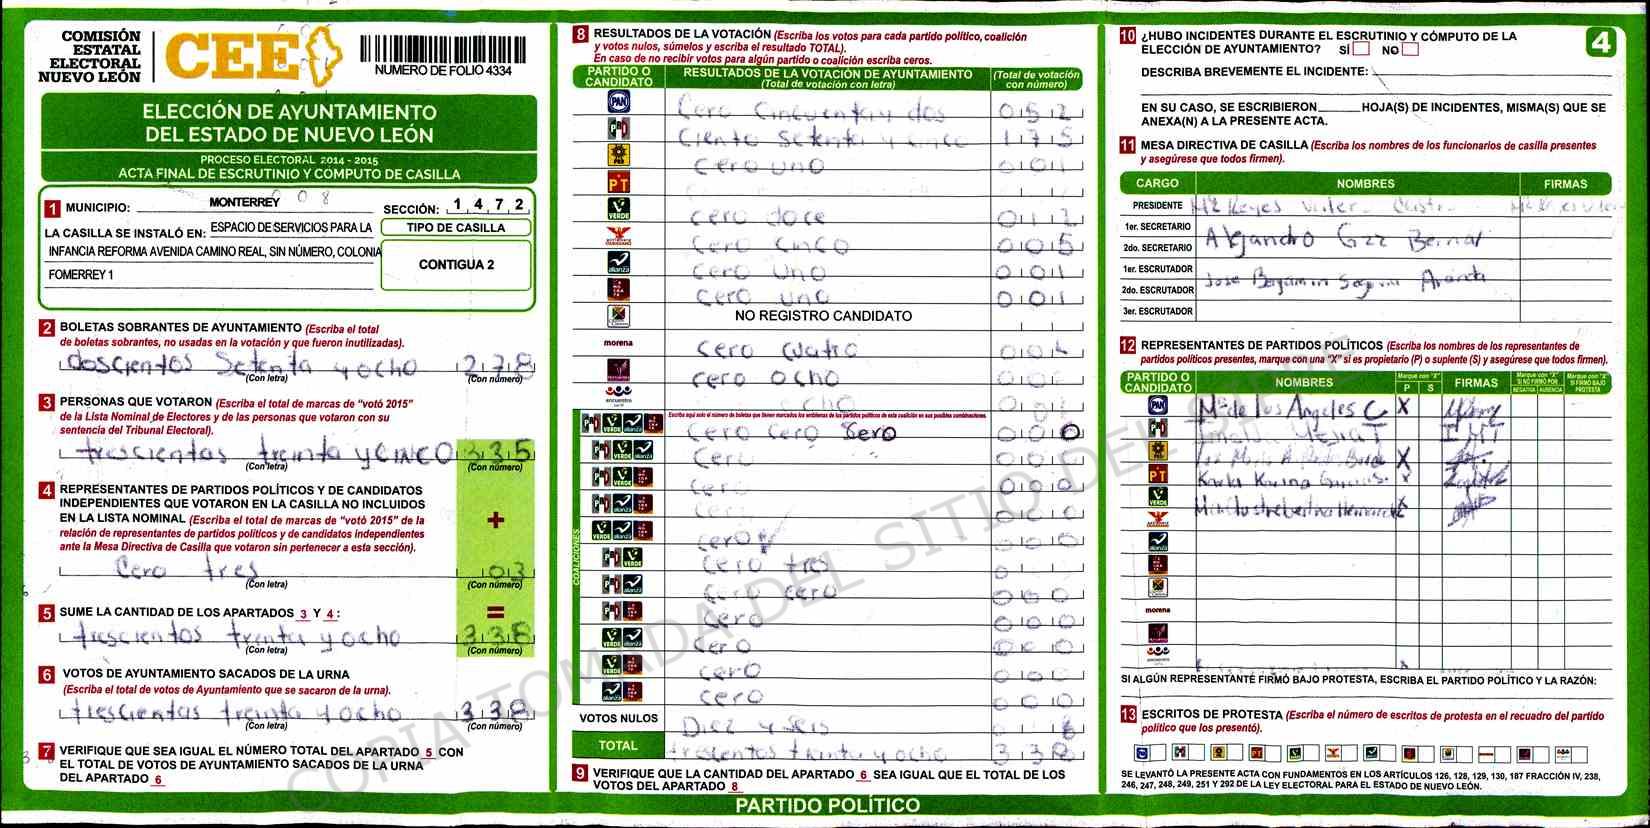 COMISIÓN
ESTATAL
ELECTORAL
NUEVO LEÓN
CEE
NUMERO DE FOLIO 4334
ELECCIÓN DE AYUNTAMIENTO
DEL ESTADO DE NUEVO LEÓN
PROCESO ELECTORAL 2014 - 2015
ACTA FINAL DE ESCRUTINIO Y CÓMPUTO DE CASILLA
1 MUNICIPIO: MONTERREY 08 SECCIÓN: 1 4 7 2
LA CASILLA SE INSTALÓ EN: ESPACIO DE SERVICIOS PARA LA
INFANCIA REFORMA AVENIDA CAMINO REAL, SIN NÚMERO, COLONIA
FOMERREY 1
TIPO DE CASILLA
CONTIGUA 2
2 BOLETAS SOBRANTES DE AYUNTAMIENTO (Escriba el total
de boletas sobrantes, no usadas en la votación y que fueron inutilizadas).
doscientos Setenta y ocho 2 7 8
(Con letra) (Con número)
3 PERSONAS QUE VOTARON (Escriba el total de marcas de "votó 2015"
de la Lista Nominal de Electores y de las personas que votaron con su
sentencia del Tribunal Electoral).
trescientas treinta y CINCO 3 3 5
(Con letra) (Con número)
4 REPRESENTANTES DE PARTIDOS POLÍTICOS Y DE CANDIDATOS
INDEPENDIENTES QUE VOTARON EN LA CASILLA NO INCLUIDOS
EN LA LISTA NOMINAL (Escriba el total de marcas de "votó 2015" de la
relación de representantes de partidos políticos y de candidatos independientes
ante la Mesa Directiva de Casilla que votaron sin pertenecer a esta sección).
+
Cero tres 03
(Con letra) (Con número)
5 SUME LA CANTIDAD DE LOS APARTADOS 3 Y 4 :
=
trescientos treinta y ocho 3 3 8
(Con letra) (Con número)
6 VOTOS DE AYUNTAMIENTO SACADOS DE LA URNA
(Escriba el total de votos de Ayuntamiento que se sacaron de la urna).
trescientas treinta y ocho 3 3 8
(Con letra) (Con número)
7 VERIFIQUE QUE SEA IGUAL EL NÚMERO TOTAL DEL APARTADO 5 CON
EL TOTAL DE VOTOS DE AYUNTAMIENTO SACADOS DE LA URNA
DEL APARTADO 6
8 RESULTADOS DE LA VOTACIÓN (Escriba los votos para cada partido político, coalición
y votos nulos, súmelos y escriba el resultado TOTAL).
En caso de no recibir votos para algún partido o coalición escriba ceros.
PARTIDO O CANDIDATO
RESULTADOS DE LA VOTACIÓN DE AYUNTAMIENTO
(Total de votación con letra)
(Total de votación con número)
PAN Cero Cincuenta y dos 0 5 2
PRI Ciento Setenta y cinco 1 7 5
PRD cero uno 0 0 1
PT
VERDE cero doce 0 1 2
Cero Cinco 0 0 5
alianza Cero Uno 0 0 1
cero uno 0 0 1
NO REGISTRO CANDIDATO
morena cero cuatro 0 0
cero ocho 0 0
encuentro
COALICIONES
Escriba aquí solo el número de boletas que tienen marcados los emblemas de los partidos políticos de esta coalición en sus posibles combinaciones.
Cero Cero Sero 0 0 0
Cero 0 0
cero 0 0 0
0 0 0
cero 0 0 0
Cero tres 0
Cero cero 0 0 0
Cero 0 0 0
cero 0 0 0
cero 0 0 0
cero 0 0 0
VOTOS NULOS Diez y seis
TOTAL trescientos treinta y ocho 3 3 8
9 VERIFIQUE QUE LA CANTIDAD DEL APARTADO 6 SEA IGUAL QUE EL TOTAL DE LOS
VOTOS DEL APARTADO 8
PARTIDO POLÍTICO
4
10 ¿HUBO INCIDENTES DURANTE EL ESCRUTINIO Y CÓMPUTO DE LA
ELECCIÓN DE AYUNTAMIENTO? SÍ NO
DESCRIBA BREVEMENTE EL INCIDENTE:
EN SU CASO, SE ESCRIBIERON HOJA(S) DE INCIDENTES, MISMA(S) QUE SE
ANEXA(N) A LA PRESENTE ACTA.
11 MESA DIRECTIVA DE CASILLA (Escriba los nombres de los funcionarios de casilla presentes
y asegúrese que todos firmen).
CARGO NOMBRES FIRMAS
PRESIDENTE Reyes
1er. SECRETARIO
2do. SECRETARIO Alejandro Gzz Bernal
1er. ESCRUTADOR
2do. ESCRUTADOR Jose Benjamin
3er. ESCRUTADOR
12 REPRESENTANTES DE PARTIDOS POLÍTICOS (Escriba los nombres de los representantes de
partidos políticos presentes, marque con una "X" si es propietario (P) o suplente (S) y asegúrese que todos firmen).
PARTIDO O CANDIDATO NOMBRES Marque con "X" P S FIRMAS Marque con "X" SI NO FIRMÓ POR NEGATIVA AUSENCIA Marque con "X" SI FIRMÓ BAJO PROTESTA
PAN Ma de los Angeles C X
PRI
PRD X
PT Karla Karina
VERDE
alianza
morena
encuentro
SI ALGÚN REPRESENTANTE FIRMÓ BAJO PROTESTA, ESCRIBA EL PARTIDO POLÍTICO Y LA RAZÓN:
13 ESCRITOS DE PROTESTA (Escriba el número de escritos de protesta en el recuadro del partido
político que los presentó).
SE LEVANTÓ LA PRESENTE ACTA CON FUNDAMENTOS EN LOS ARTÍCULOS 126, 128, 129, 130, 187 FRACCIÓN IV, 238,
246, 247, 248, 249, 251 Y 292 DE LA LEY ELECTORAL PARA EL ESTADO DE NUEVO LEÓN.
COPIA TOMADA DEL SITIO DEL SIPRE